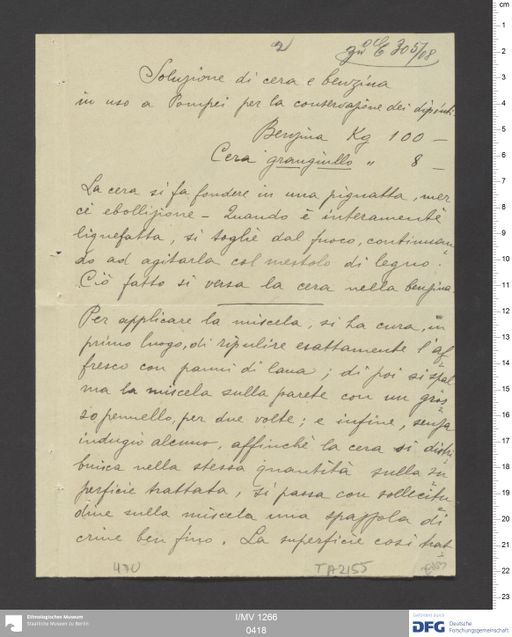 2
zu E 305/08
Soluzione di cera e benzina
in uso a Pompei per la conservazione dei dipinti.
Benzina Kg 100 —
Cera grangiullo " 8 —
La cera si fa fondere in una pignatta, mer
cè ebollizione — Quando è interamente
liquefatta, si toglie dal fuoco, continuan
do ad agitarla col mestolo di legno.
Ciò fatto si versa la cera nella benzina
Per applicare la miscela, si ha cura, in
primo luogo, di ripulire esattamente l'af
fresco con panni di lana; di poi si spal
ma la miscela sulla parete con un gros
so pennello, per due volte; e infine, senza
indugio alcuno, affinchè la cera si distri
buisca nella stessa quantità sulla su
perficie trattata, si passa con sollecitu
dine sulla miscela una spazzola di
crine ben fino. La superficie così trat
470
TA2155
Ethnologisches Museum
Staatliche Museen zu Berlin
I/MV 1266
0418
Gefördert durch
DFG Deutsche
Forschungsgemeinschaft
cm
1
2
3
4
5
6
7
8
9
10
11
12
13
14
15
16
17
18
19
20
21
22
23